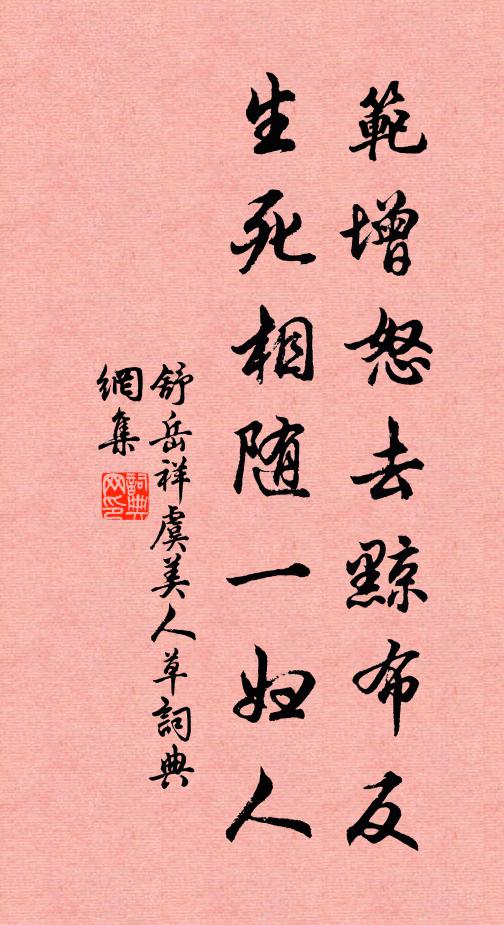 範增怒去黥布反
生死相随一妇人
舒岳祥虞美人草詞典
網集
詞典
网印